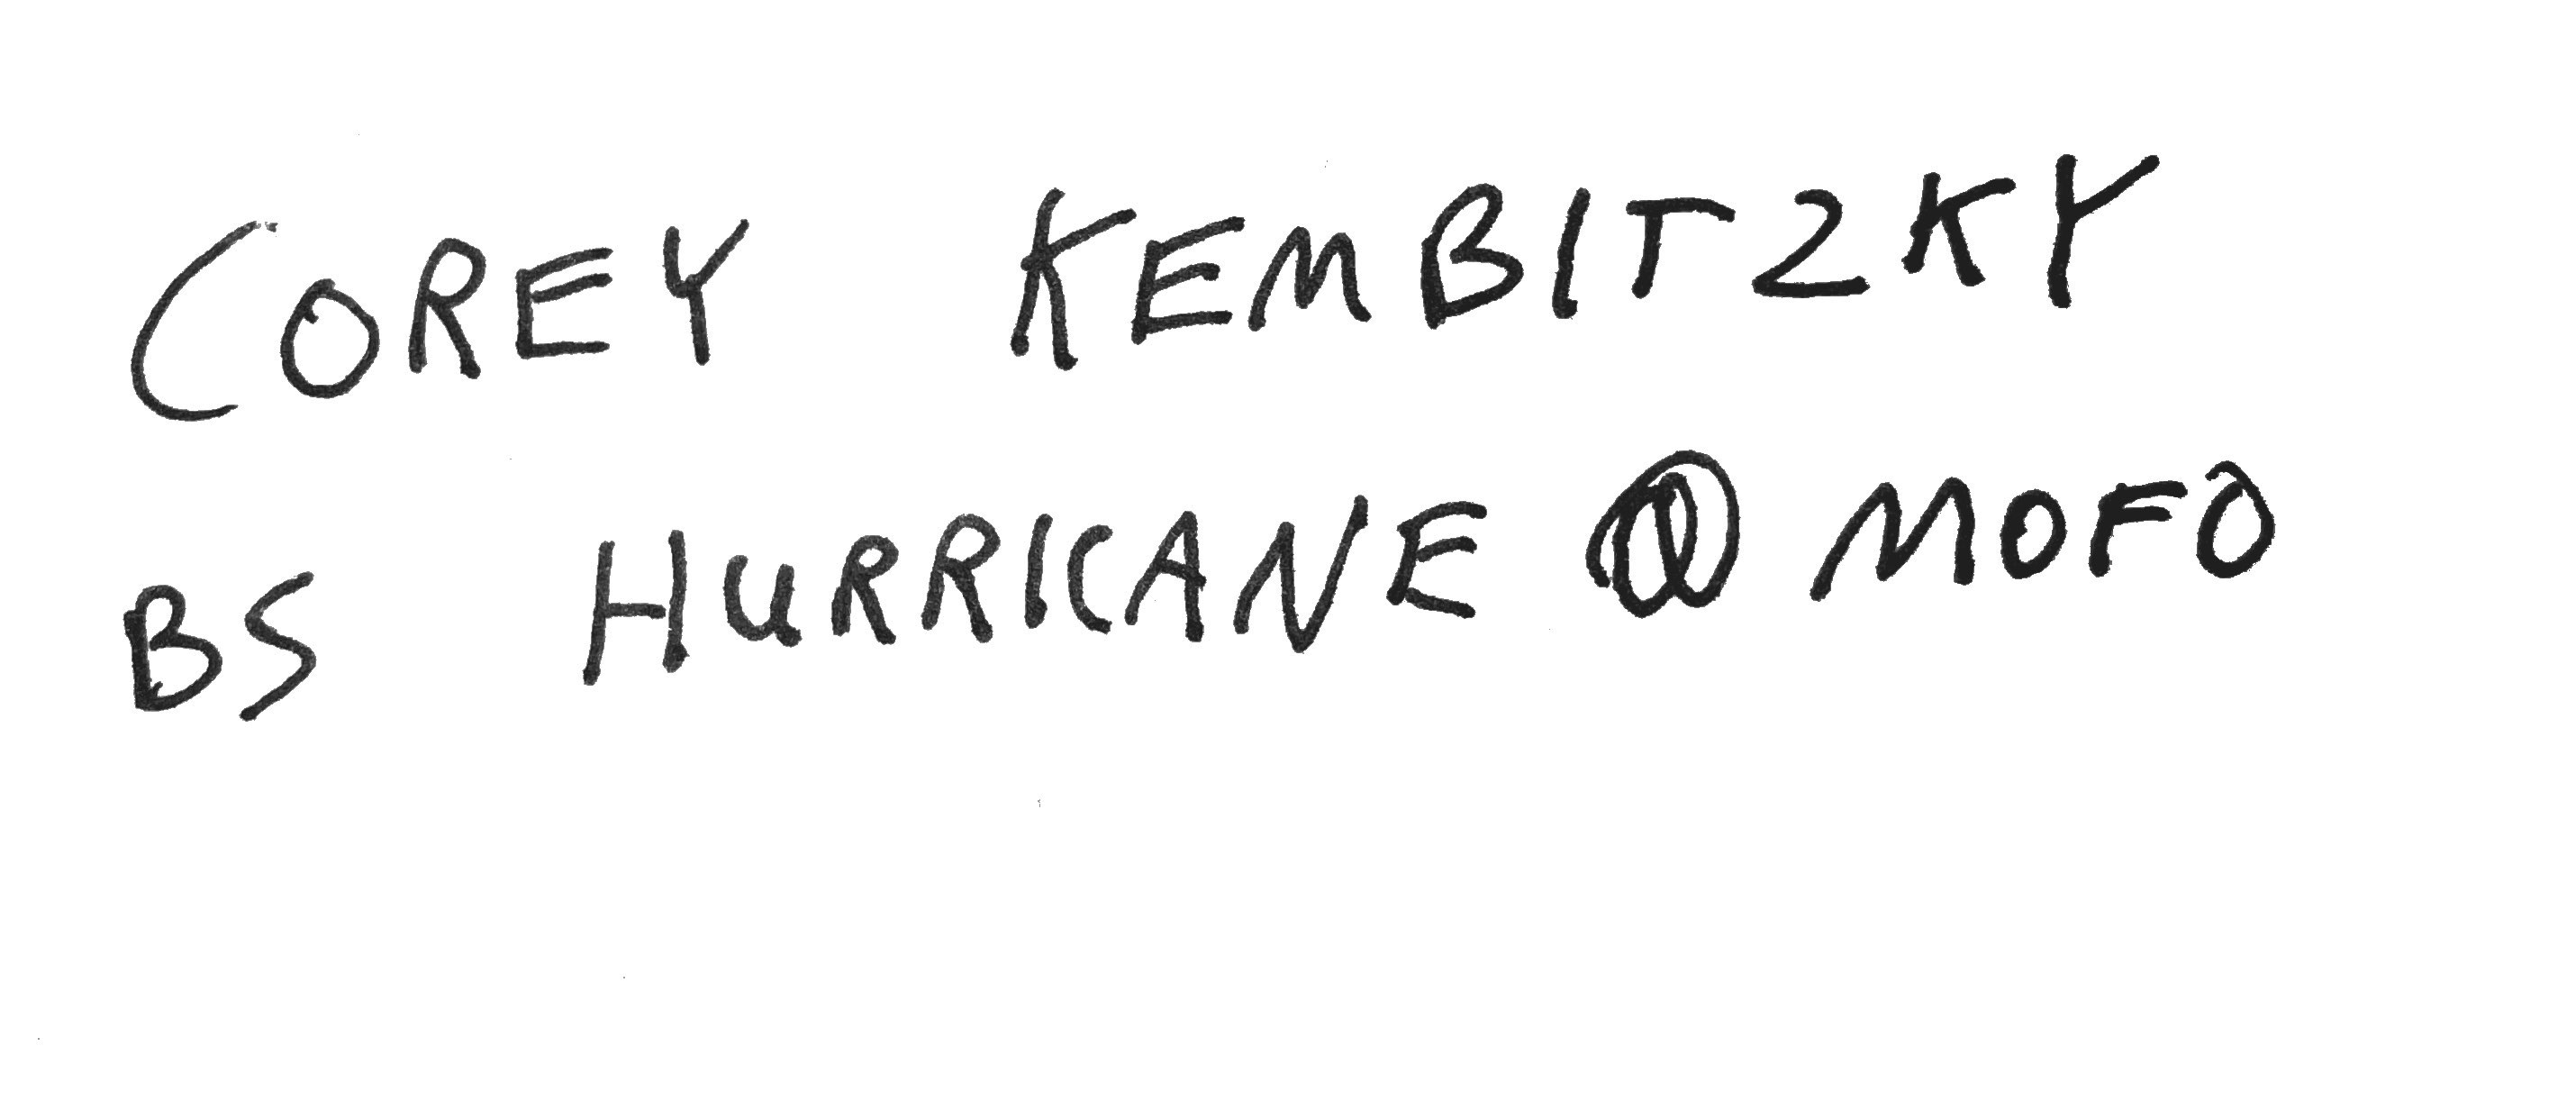 COREY KEMBITZKY
BS HURRICANE @ MOFO